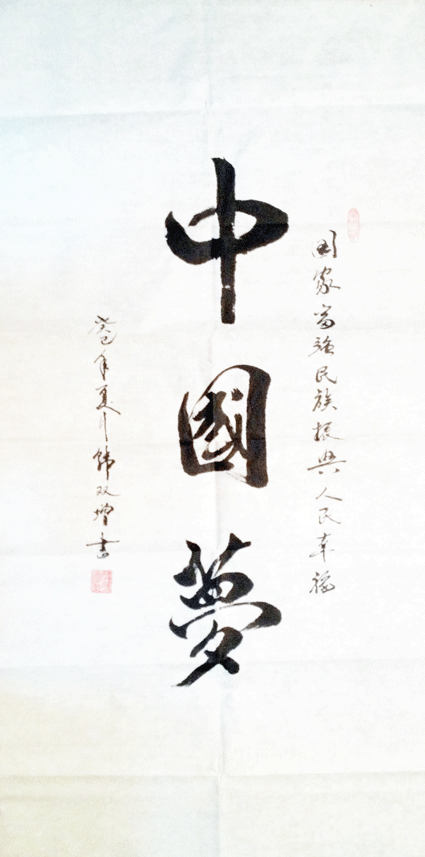 国家富强民族振兴人民幸福
中國夢
癸巳年夏月韩双增书